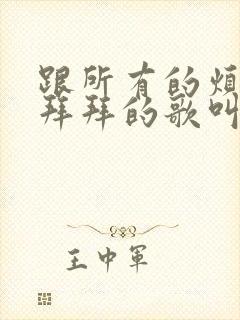 跟所有的烦
拜拜的歌叫
王中军